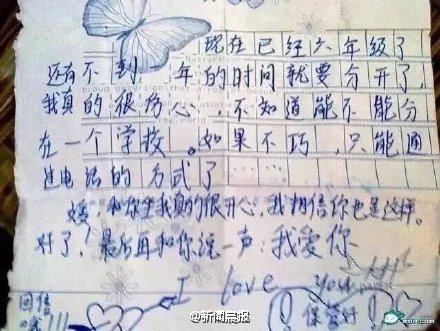 现在已经六年级了
还有不到一年的时间就要分开了,
我真的很伤心,不知道能不能分
在一个学校。如果不巧,只能通
过电话的方式了……
媛,和你坐我真的很开心,我相信你也是这样。
好了!最后再和你说一声:我爱你
I love you
回信
哦!!!
保管好
@新闻晨报